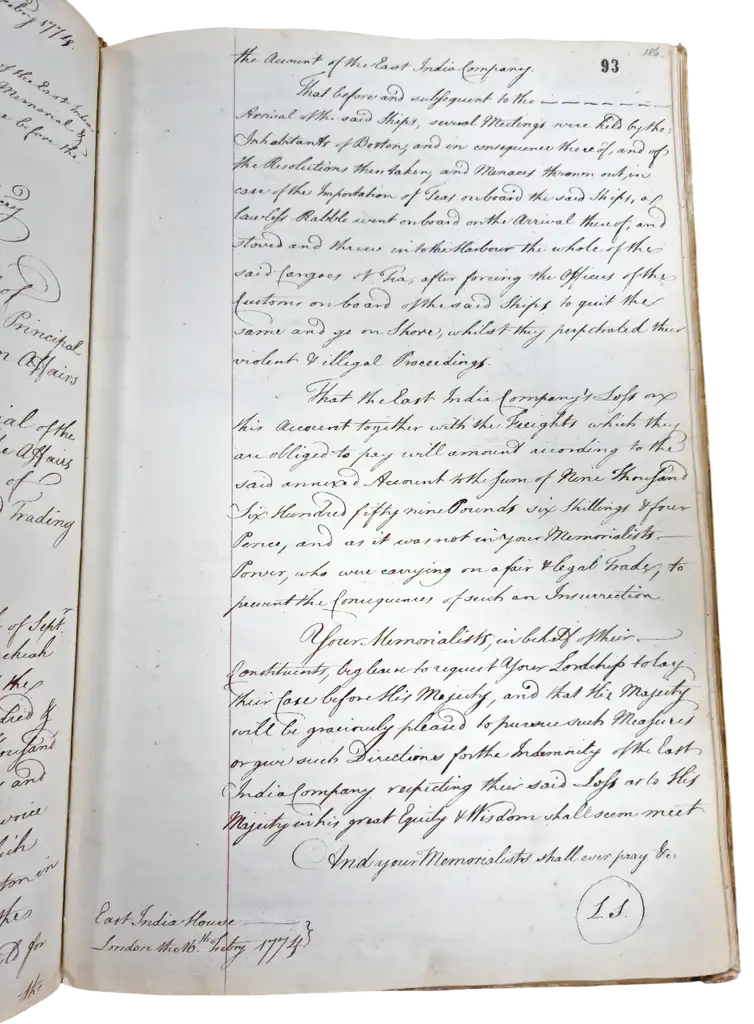 Febry 1774.
of the East India
Memorial &
e before the
of
Principal
n Affairs
ial of the
e Affairs
of
d Trading
h of Septr.
the
dred &
housand
s and
nvoice
hich
ton in
thes
d for
the
186.
93
the Account of the East India Company.
That before and subsequent to the
Arrival of the said Ships, several Meetings were held by the
Inhabitants of Boston, and in consequence thereof, and of
the Resolutions then taken, and Menaces thrown out, in
case of the Importation of Teas on board the said Ships, a
lawless Rabble went on board on the Arrival thereof, and
stoved and threw into the Harbour the whole of the
said Cargoes of Tea, after forcing the Officers of the
Customs on board of the said Ships to quit the
same and go on Shore, whilst they perpetrated their
violent & illegal Proceedings.
That the East India Company's Loss on
this Account together with the Freights which they
are obliged to pay will amount according to the
said annexed Account to the Sum of Nine Thousand
Six Hundred fifty nine Pounds six Shillings & four
Pence, and as it was not in your Memorialists
Power, who were carrying on a fair & legal Trade, to
prevent the Consequences of such an Insurrection
Your Memorialists, in behalf of their
Constituents, beg leave to request Your Lordship to lay
their Case before His Majesty, and that His Majesty
will be graciously pleased to pursue such Measures
or give such Directions for the Indemnity of the East
India Company respecting their said Loss as to His
Majesty in his great Equity & Wisdom shall seem meet
And your Memorialists shall ever pray &c
L.S.
East India House
London the 16.th Febry 1774.